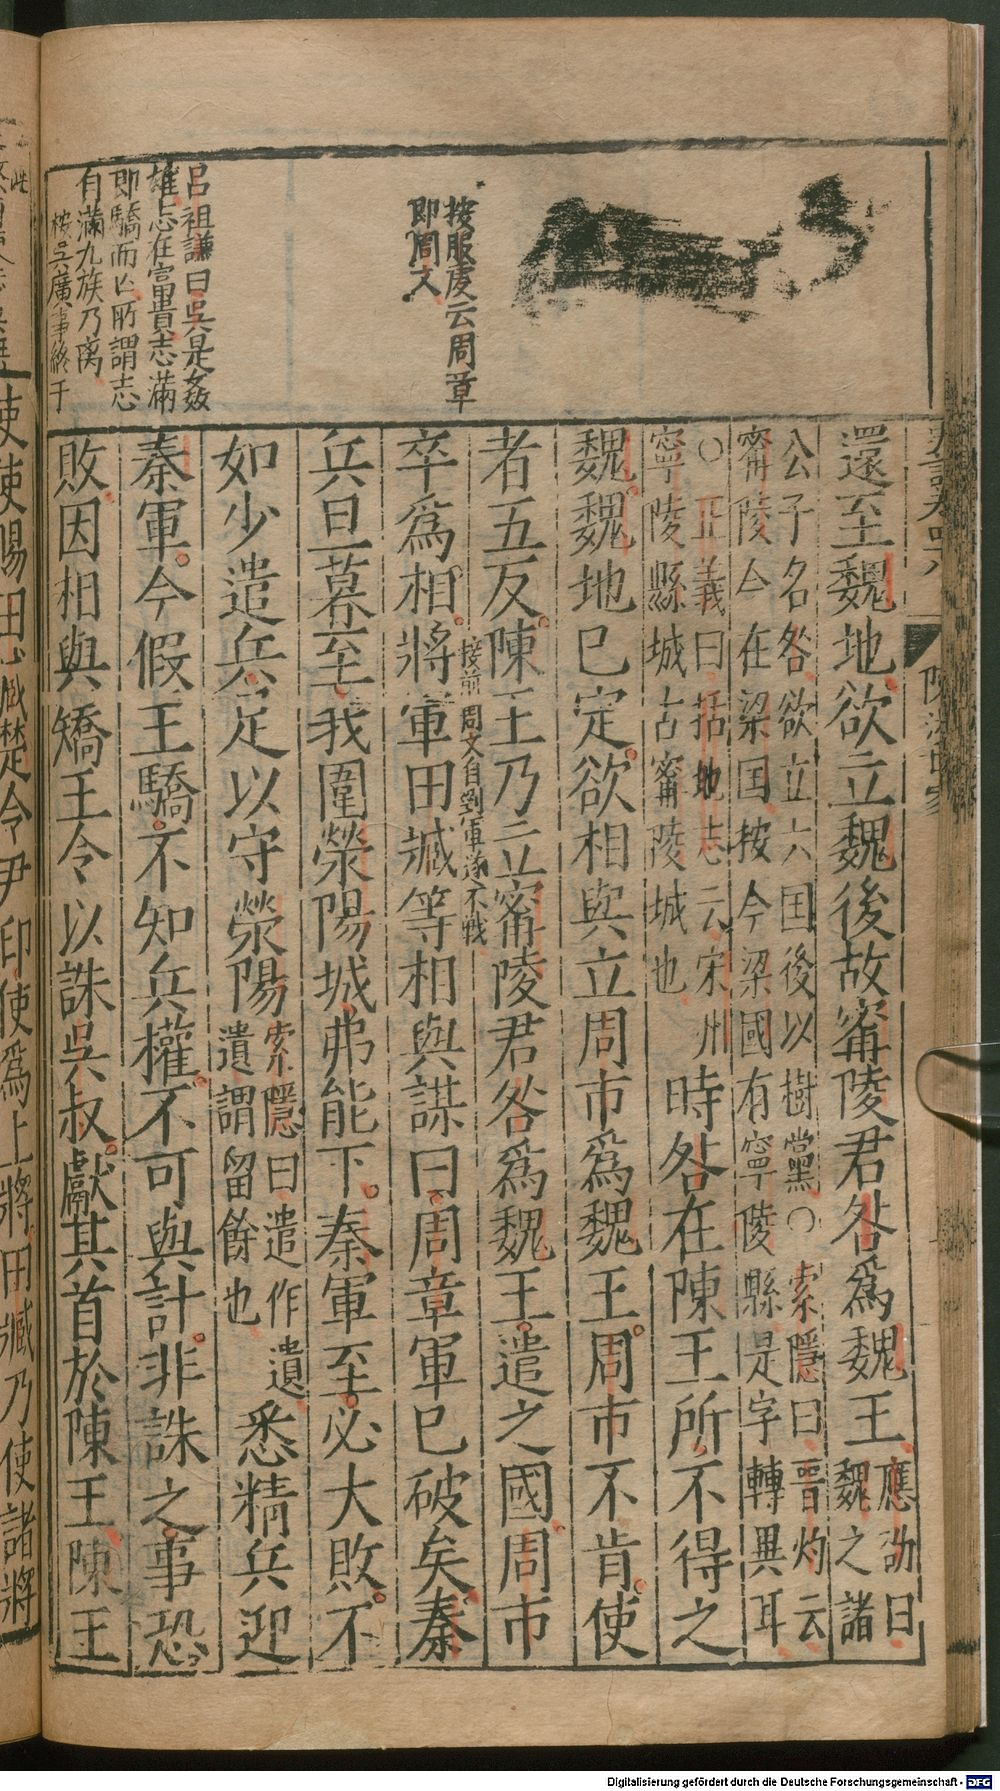 還至魏地欲立魏後故甯陵君咎爲魏王應劭曰魏之諸
公子名咎欲立六国後以樹黨○索隱曰晋灼云
甯陵今在梁国按今梁國有寧陵縣是字轉異耳
○正義曰括地志云宋州
寧陵縣城古甯陵城也
時咎在陳王所不得之
魏魏地已定欲相與立周市爲魏王周市不肯使
者五反陳王乃立甯陵君咎爲魏王遣之國周市
接前周文自剄軍遂不戰
卒爲相將軍田臧等相與謀曰周章軍已破矣秦
兵旦暮至我圍滎陽城弗能下秦軍至必大敗不
如少遣兵足以守滎陽索隱曰遣作遺遺謂留餘也悉精兵迎
秦軍今假王驕不知兵權不可與計非誅之事恐
敗因相與矯王令以誅吳叔獻其首於陳王陳王
按服虔云周章
即周文
呂祖謙曰吳是姦
雄志在富貴志滿
即驕而亡所謂志
自滿九族乃离
按吳廣事終于
使使賜田臧楚令尹印使爲上將田臧乃使諸將
Digitalisierung gefördert durch die Deutsche Forschungsgemeinschaft - DFG